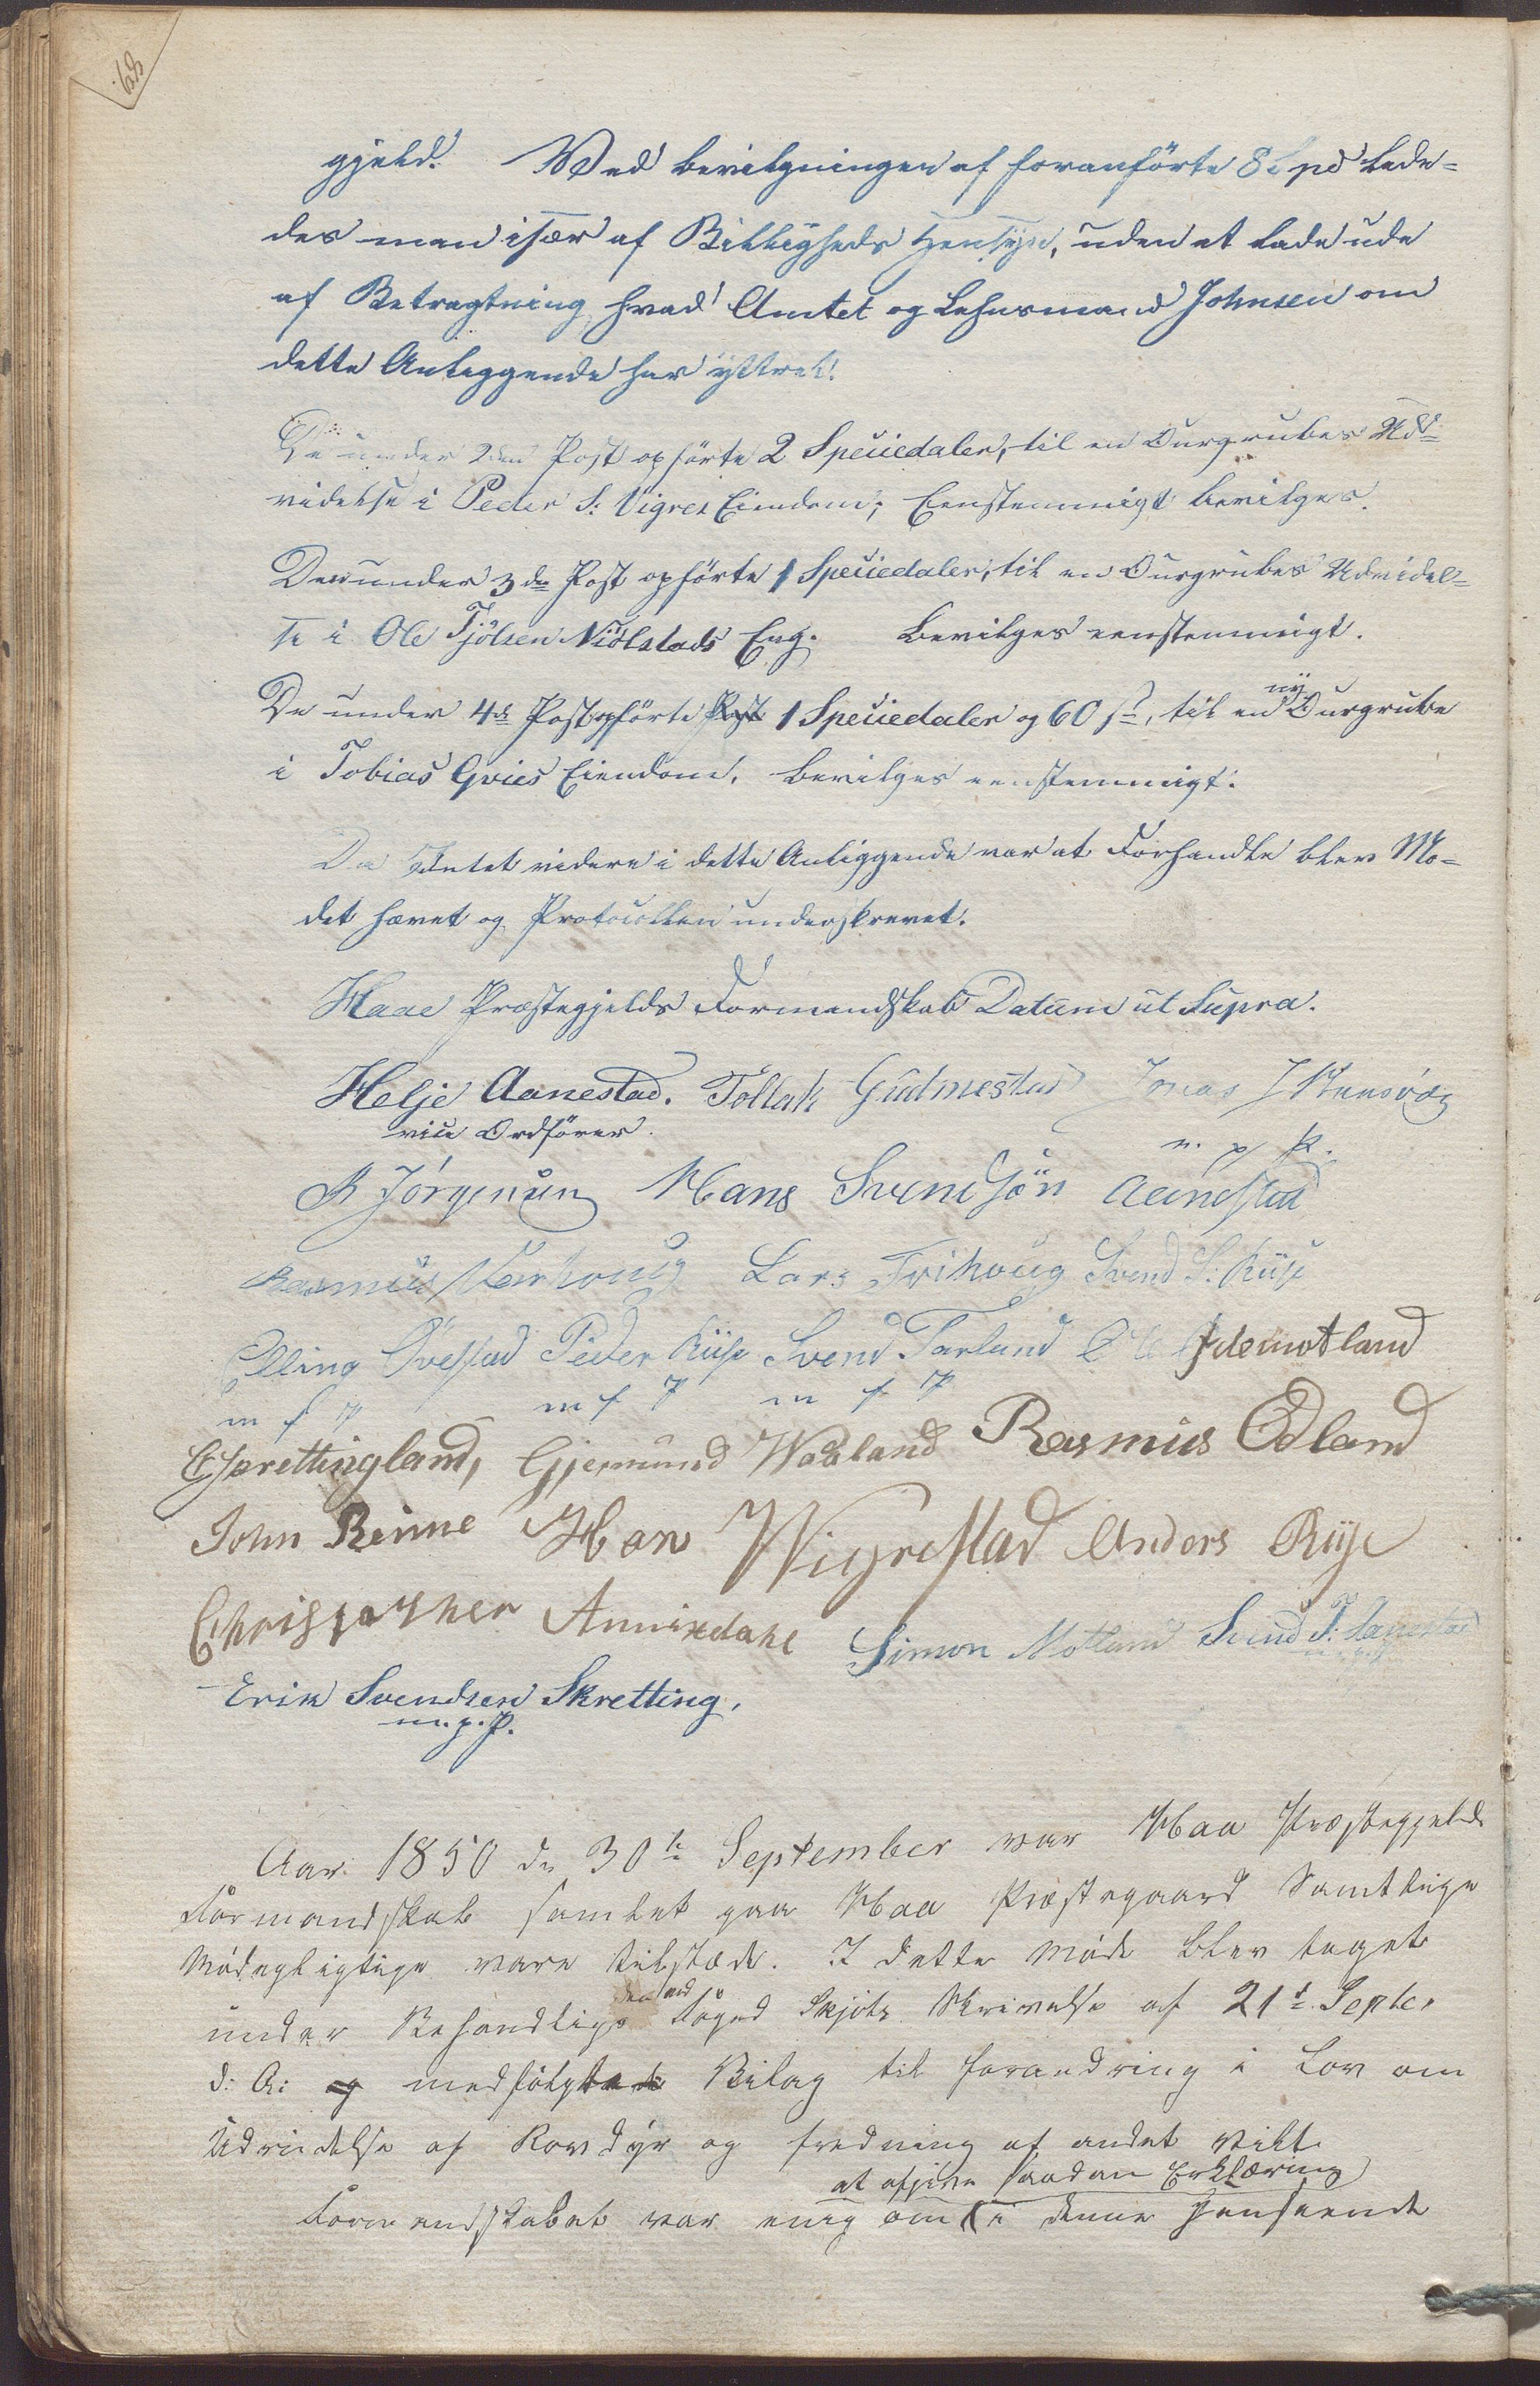 gjeld. Ved Bevilgningen af foranførte 8 Spd lede-
des man især af Billigheds Hensyn, uden at lade ude
af Betragtning hvad Amtet og Lehnsmand Johnsen om
dette Anliggende har yttret.
De under 2den Post opførte 2 Speciedaler, til en Ourgrubes Ud-
videlse i Peder S: Vigres Eiendom; Eenstemmigt bevilges.
Den under 3de Post opførte 1 Speciedaler, til en Ourgrubes Udvidel-
se i Ole Tjølsen Niölstads Eng. Bevilges eenstemmigt.
De under 4de Post opførte Post 1 Speciedaler og 60 s, til en ny Ourgrube
i Tobias Qvies Eiendom, bevilges eenstemmigt.
Da Intet videre i dette Anliggende var at Forhandle blev Mö-
det hævet og Protocollen underskrevet.
Haae Præstegjelds Formandskab Datum ut Supra.
Helje Aanestad. Tollak Gudmestad Jonas
vice Ordfører. m. p. P.
R Jörgensen Hans Svendsön Aanestad
Rasmus Varhoug Lars Frihoug Svend S: Riise
Elling Øvestad Peder Riise Svend Tarland Ole Idemotland
m f P m f P m f P
Sprettingland, Gjermund Wadland Rasmus Edland
John Rinne Han Wigrestad Anders Riise
Christopher Anniedahl Simon Motland Svend T. Aanestad
m.p.P
Erik Svendsen Skretting.
m. p. P.
Aar 1850 de 30te September var Haa Præstegjelds
Formandskab samlet paa Haa Præstegaard Samtlige
Mødepligtige vare tilstæde. I dette Møde blev taget
under Behandlig Foged Skjöts Skrivelse af 21de Septe,
d: A: og medfølgende Bilag til forandring i Lov om
Udryddelse af Rovdyr og fredning af andet Vildt.
at afgive saadan Erklæring
Formandskabet var enig om i denne Henseende